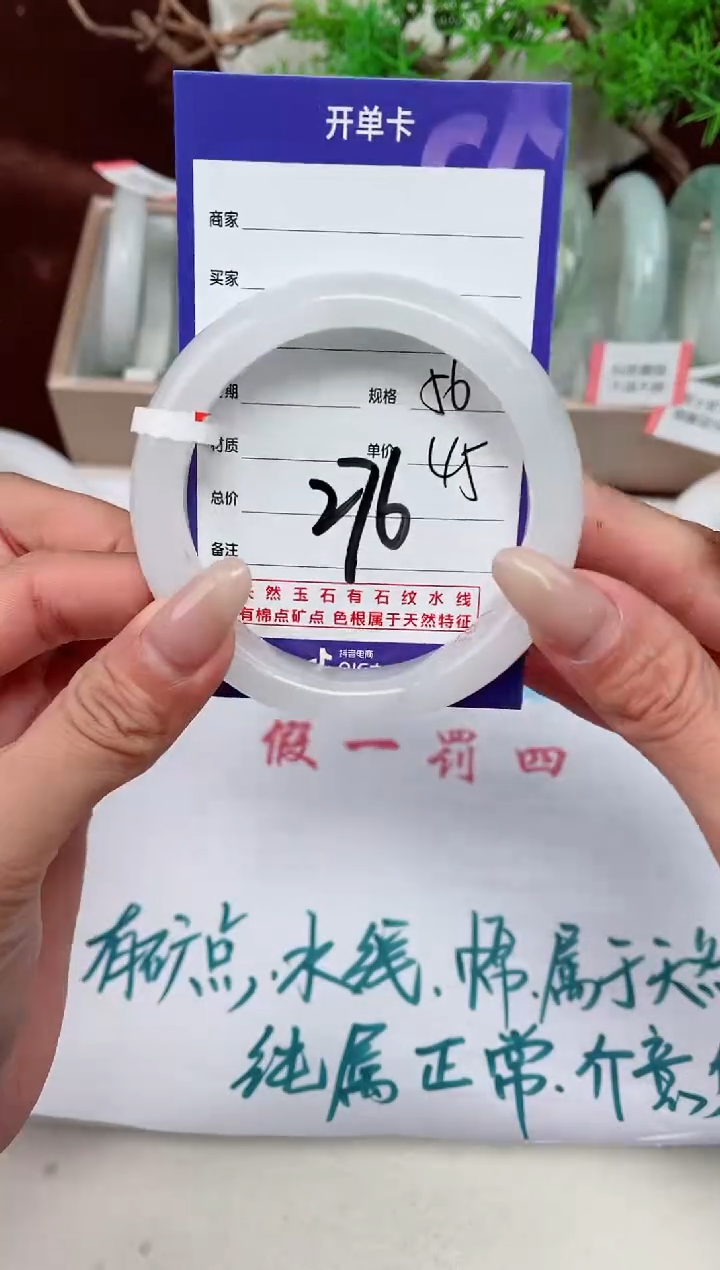 开单卡
商家
买家
期 规格 56
材质 单价 45
总价 276
备注
然玉石有石纹水线
有棉点矿点 色根属于天然特征
抖音电商
假一罚四
有矿点,水线、棉、属于天然
纯属正常、介意